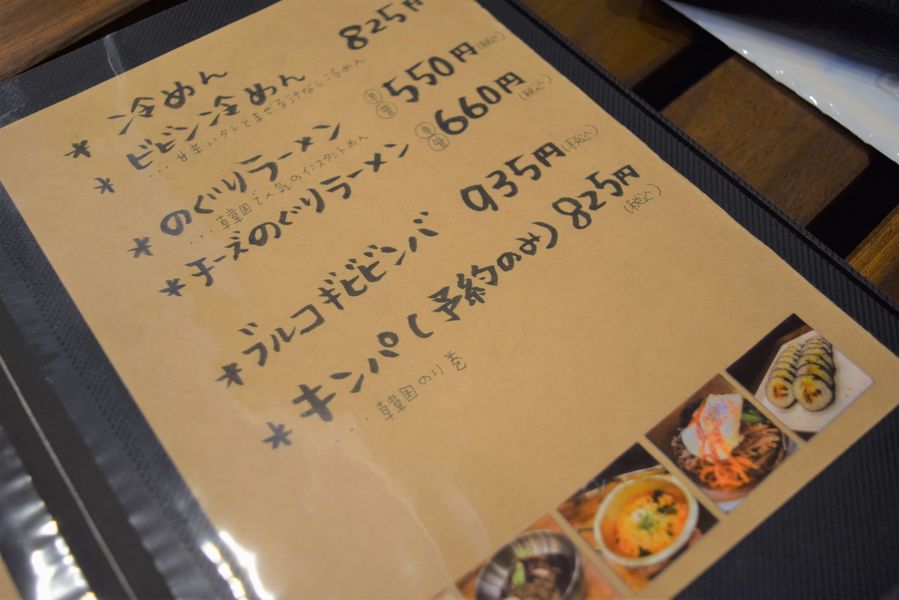 * 冷めん 825円
* ビビン冷めん
...甘辛いタレとまぜる汁なし冷めん
* のぐりラーメン 550円(税込)
...韓国で人気のインスタントめん
* チーズのぐりラーメン 660円(税込)
* プルコギビビンバ 935円(税込)
* キンパ(予約のみ) 825円(税込)
...韓国のり巻